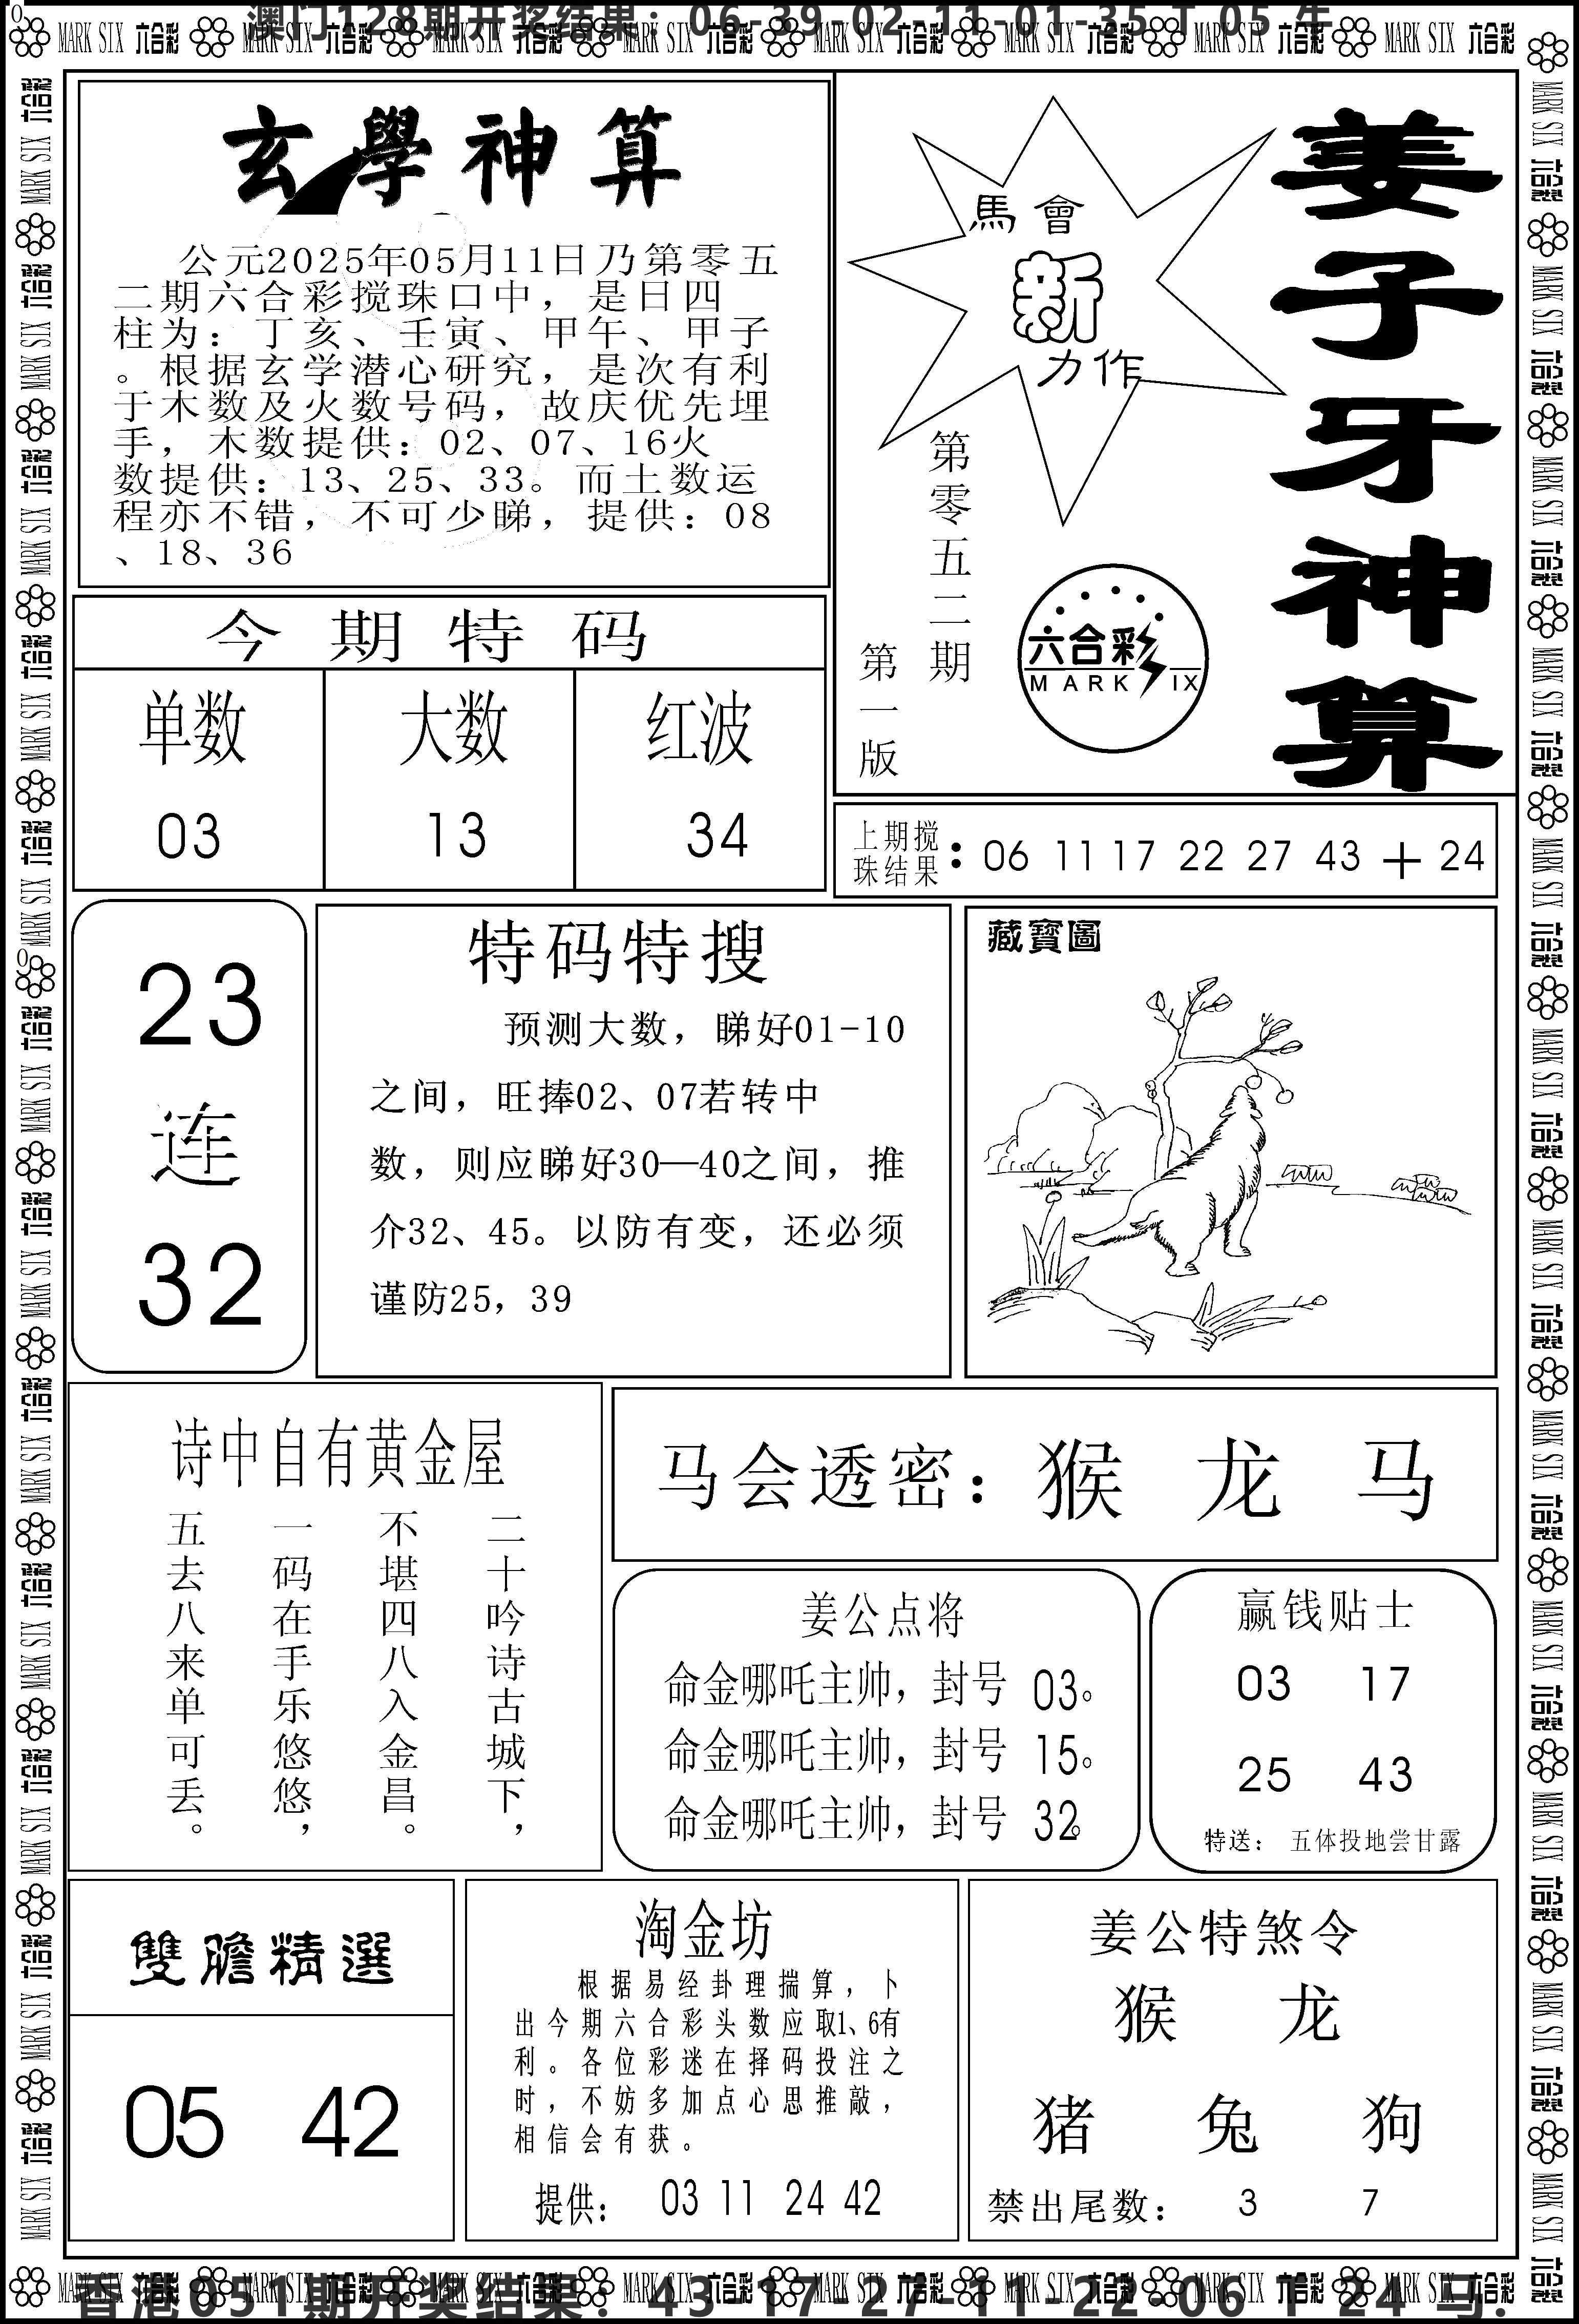 澳门128期开奖结果：06-39-02-11-01-35 T 05 牛
玄學神算
公元2025年05月11日乃第零五
二期六合彩搅珠口中，是日四
柱为：丁亥、壬寅、甲午、甲子
。根据玄学潜心研究，是次有利
于木数及火数号码，故庆优先埋
手，木数提供：02、07、16火
数提供：13、25、33。而土数运
程亦不错，不可少睇，提供：08
、18、36
馬會
新
力作
姜子牙神算
第零五二期
第一版
六合彩
MARK SIX
今期特码
单数 大数 红波
03 13 34
上期搅
珠结果：06 11 17 22 27 43 + 24
23
连
32
特码特搜
预测大数，睇好01-10
之间，旺捧02、07若转中
数，则应睇好30—40之间，推
介32、45。以防有变，还必须
谨防25，39
藏寶圖
诗中自有黄金屋
二十吟诗古城下，
不堪四八入金昌。
一码在手乐悠悠，
五去八来单可丢。
马会透密：猴 龙 马
姜公点将
命金哪吒主帅，封号 03。
命金哪吒主帅，封号 15。
命金哪吒主帅，封号 32。
赢钱贴士
03 17
25 43
特送： 五体投地尝甘露
雙膽精選
05 42
淘金坊
根据易经卦理揣算，卜
出今期六合彩头数应取1、6有
利。各位彩迷在择码投注之
时，不妨多加点心思推敲，
相信会有获。
提供： 03 11 24 42
姜公特煞令
猴 龙
猪 兔 狗
禁出尾数： 3 7
香港051期开奖结果：43-17-27-11-22-06 T 24 马